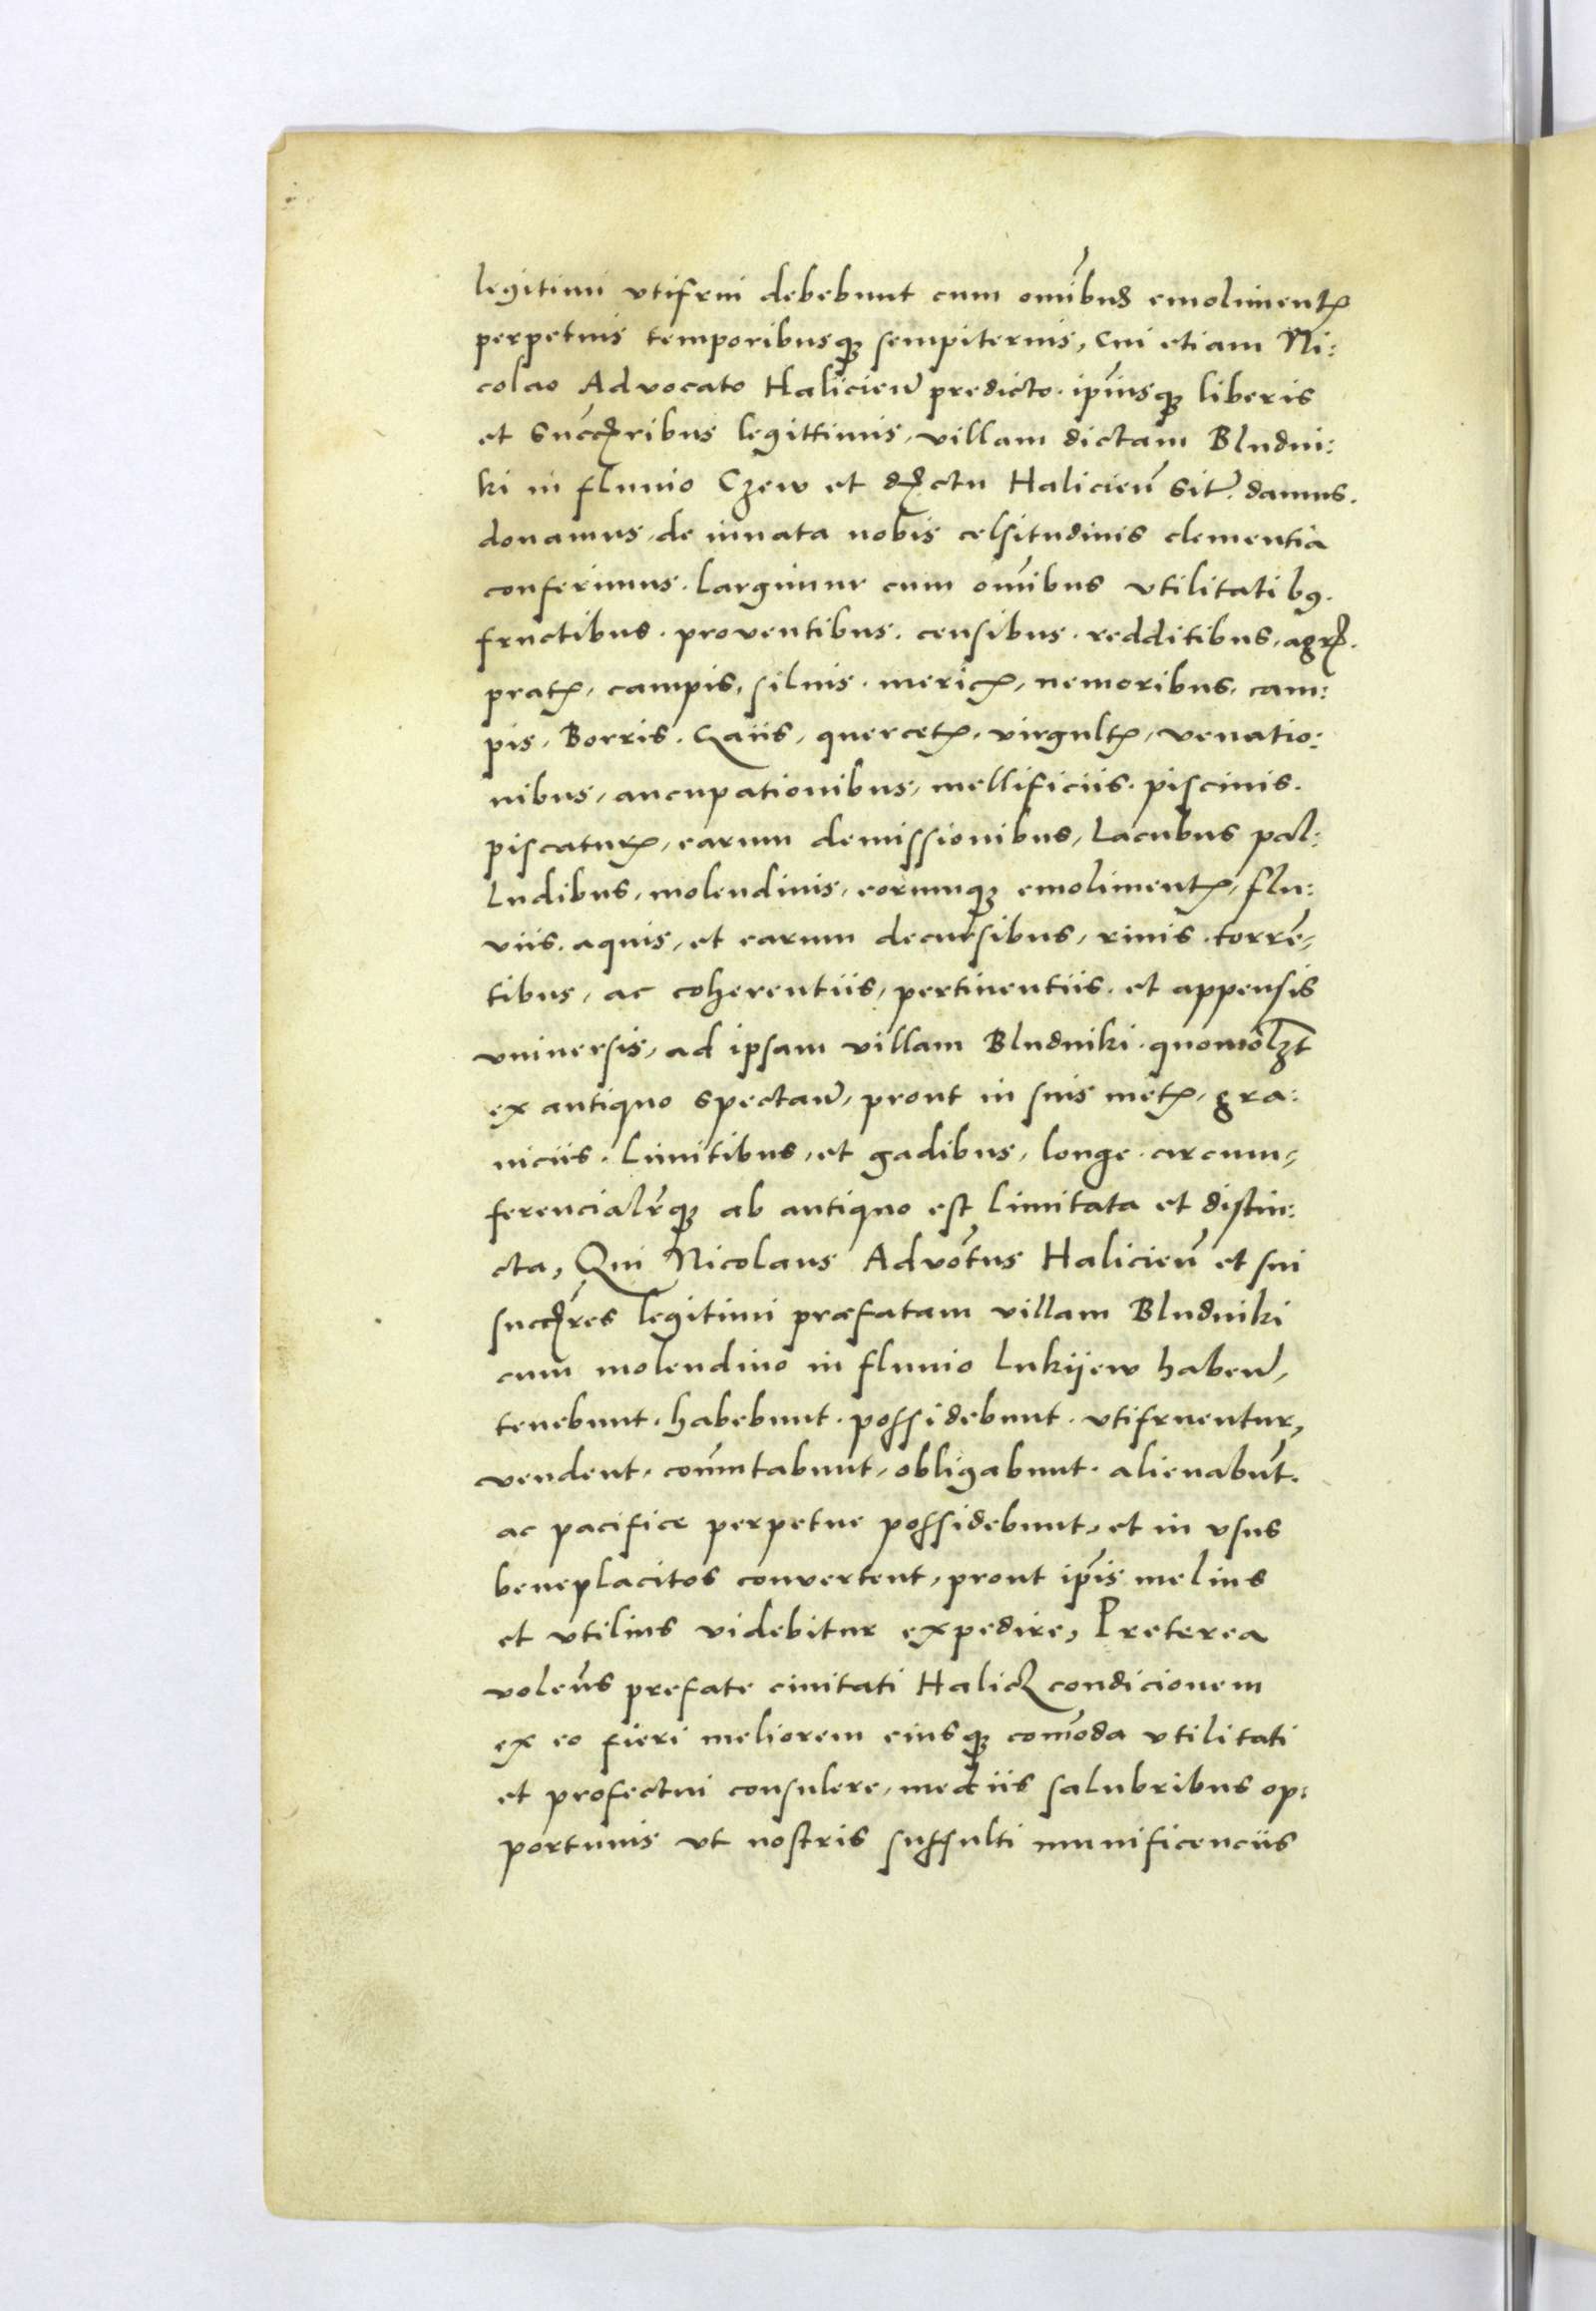 legitimi vtifrui debebunt cum om̃ibus emolimentꝭ
perpetuis temporibusqꝫ sempiternis, Cui etiam Ni:
colao Advocato Halicieñ predicto. ip̃iusqꝫ liberis
et Succꝭribus legittimis, villam dictam Bludni:
ki in fluuio Czew et dꝭctu Halicieñ Sit̃. damus.
donamus, de innata nobis celsitudinis clementia
conferimus. Largimur cum om̃ibus vtilitatibꝰ.
fructibus. proventibus. censibus. redditibus, agrꝭ.
pratꝭ, campis, siluis. mericꝭ, nemoribus, cam:
pis, Borris. Gaiis, quercetꝭ, virgultꝭ, venatio:
nibus, aucupationibus, mellificiis. piscinis.
piscaturꝭ, earum demissionibus, Lacubus pal:
Ludibus, molendinis, eorumqꝫ emolimentꝭ, flu:
viis. aquis, et earum decursibus, riuis. torrẽ,
tibus, ac coherentiis, pertinentiis. et appensis
vniuersis, ad ipsam villam Bludniki. quomolꝫt
ex antiquo spectañ, prout in suis metꝭ, gra:
niciis. Limitibus, et gadibus, longe. circum,
ferencialr̃qꝫ ab antiquo est limitata et distin:
cta, Qui Nicolaus Advõtus Halicieñ et sui
succꝭres legitimi præfatam villam Bludniki
cum molendino in fluuio Lukijew habeñ,
tenebunt. habebunt. possidebunt. vtifruentur,
vendent, com̃utabunt, obligabunt. alienabũt.
ac pacifice perpetue possidebunt, et in vsus
beneplacitos convertent, prout ip̃is melius
et vtilius videbitur expedire, Preterea
voleñs prefate ciuitati Halicꝫ condicionem
ex eo fieri meliorem eiusqꝫ com̃oda vtilitati
et profectui consulere, mediis salubribus op:
portunis vt nostris suffulti munificenciis